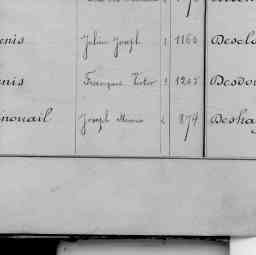 enis Julien Joseph 1 1160 Desclo
enis Françoise Victor 1 1205 Desdou
inouail Joseph Marie 2 874 Deshay